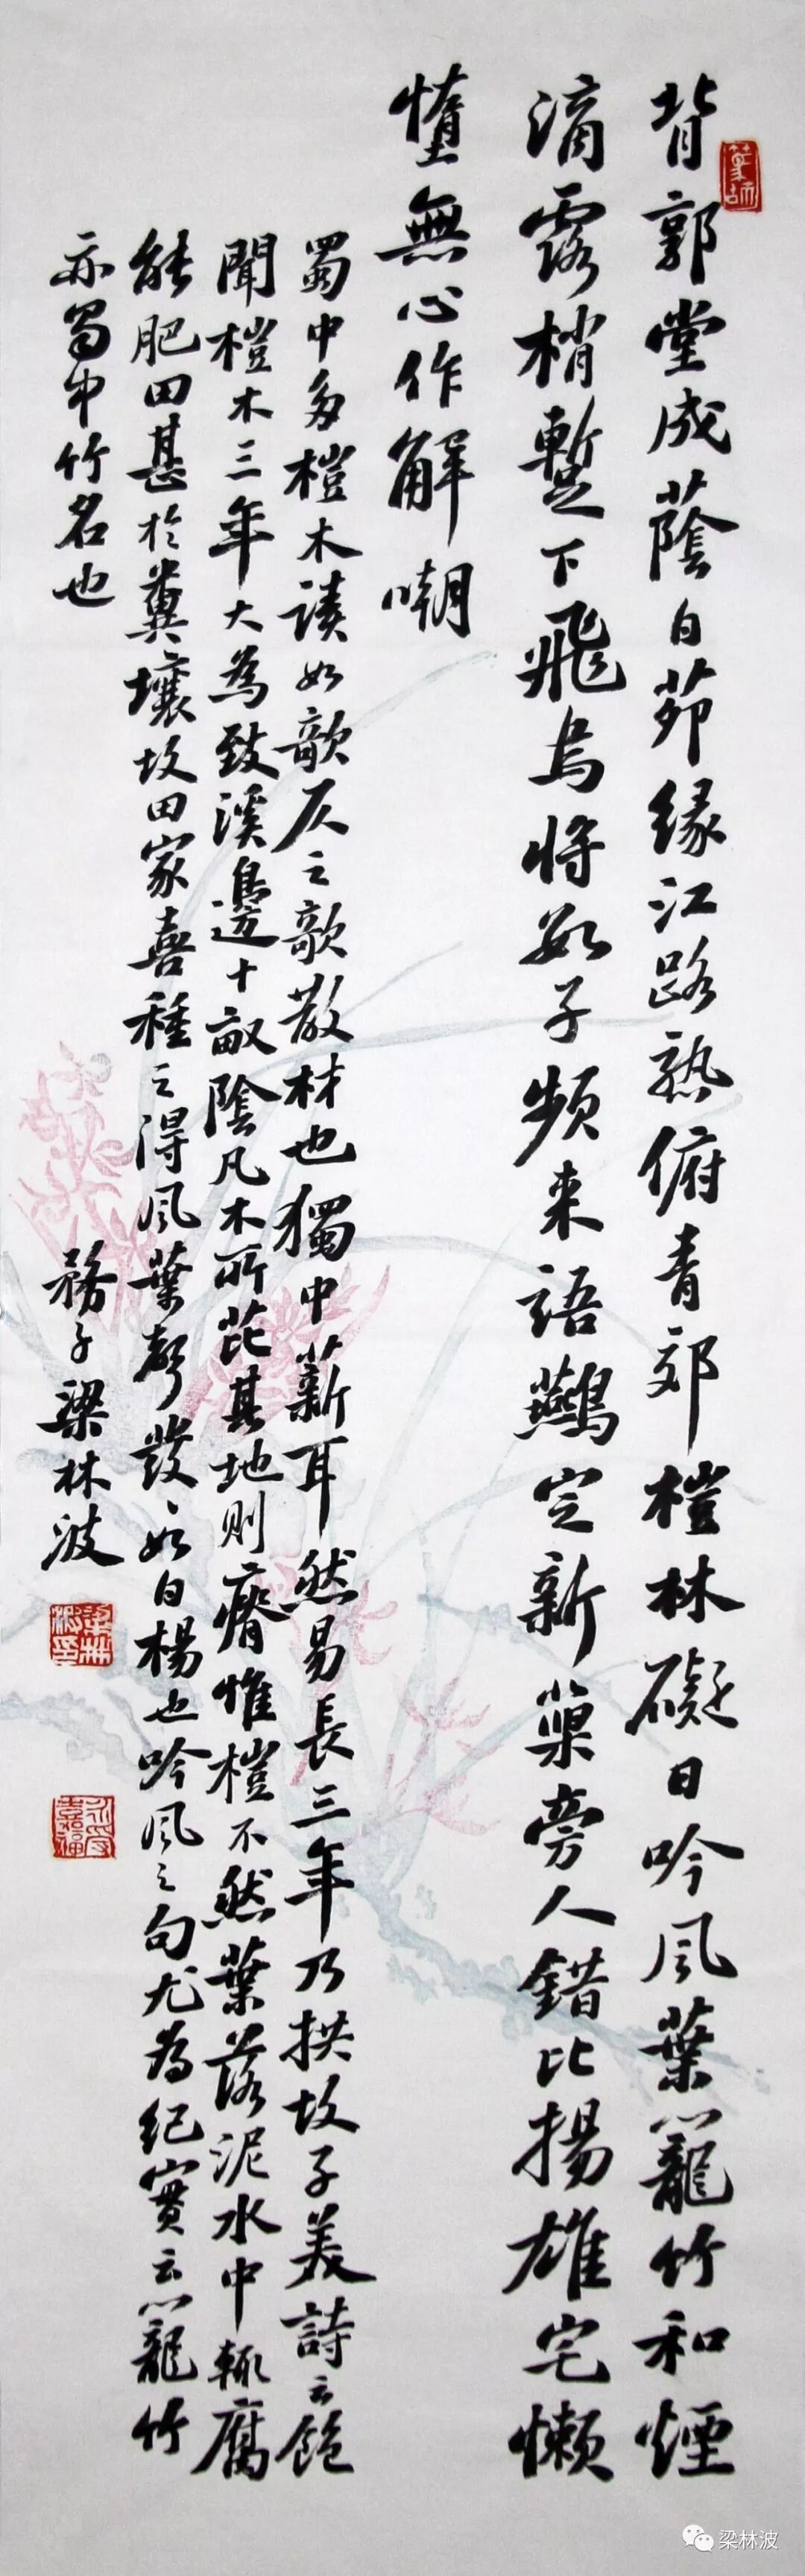 背郭堂成蔭白茆緣江路熟俯青郊榿林礙日吟風葉籠竹和煙
滴露梢暫下飛烏將數子頻來語鷰定新巢旁人錯比揚雄宅懶
惰無心作解嘲
蜀中多榿木讀如欹仄之欹散材也獨中薪耳然易長三年乃拱故子美詩云飽
聞榿木三年大為致溪邊十畝陰凡木所芘其地則瘠惟榿不然葉落泥水中輒腐
能肥田甚於糞壤故田家喜種之得風葉聲發發如白楊也吟風之句尤為紀實云籠竹
亦蜀中竹名也
務子梁林波
梁林波印
永受嘉福
梁林波